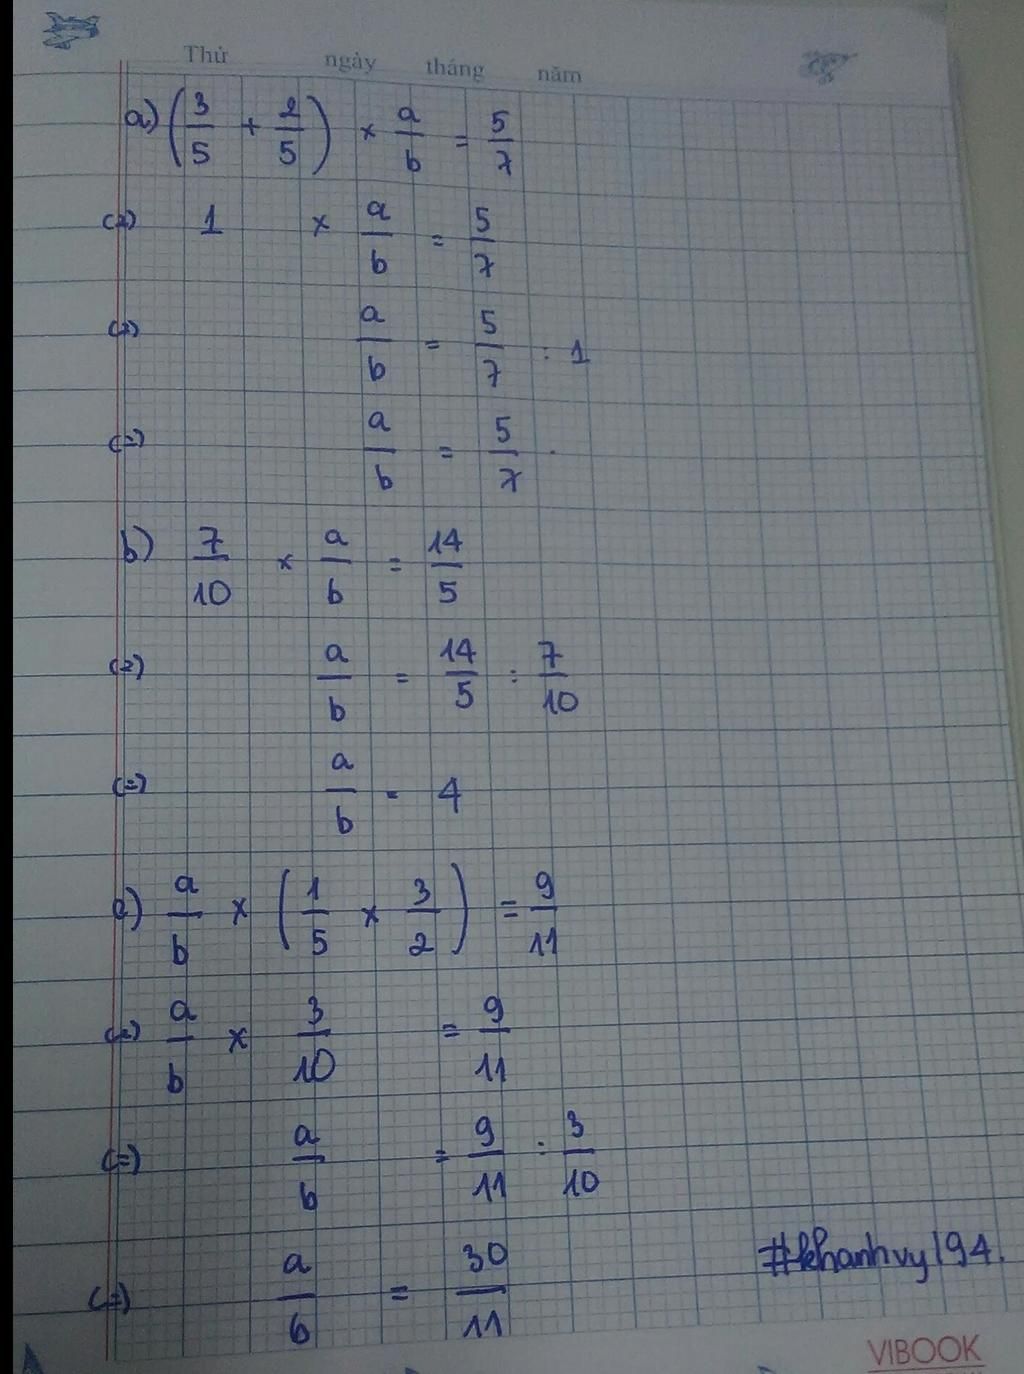 Thứ ngày tháng năm
a) (3/5 + 2/5) × a/b = 5/7
(=) 1 × a/b = 5/7
(=) a/b = 5/7 : 1
(=) a/b = 5/7 .
b) 7/10 × a/b = 14/5
(=) a/b = 14/5 : 7/10
(=) a/b = 4
c) a/b × (1/5 × 3/2) = 9/11
(=) a/b × 3/10 = 9/11
(=) a/b = 9/11 : 3/10
(=) a/b = 30/11
#khanhvy194.
VIBOOK